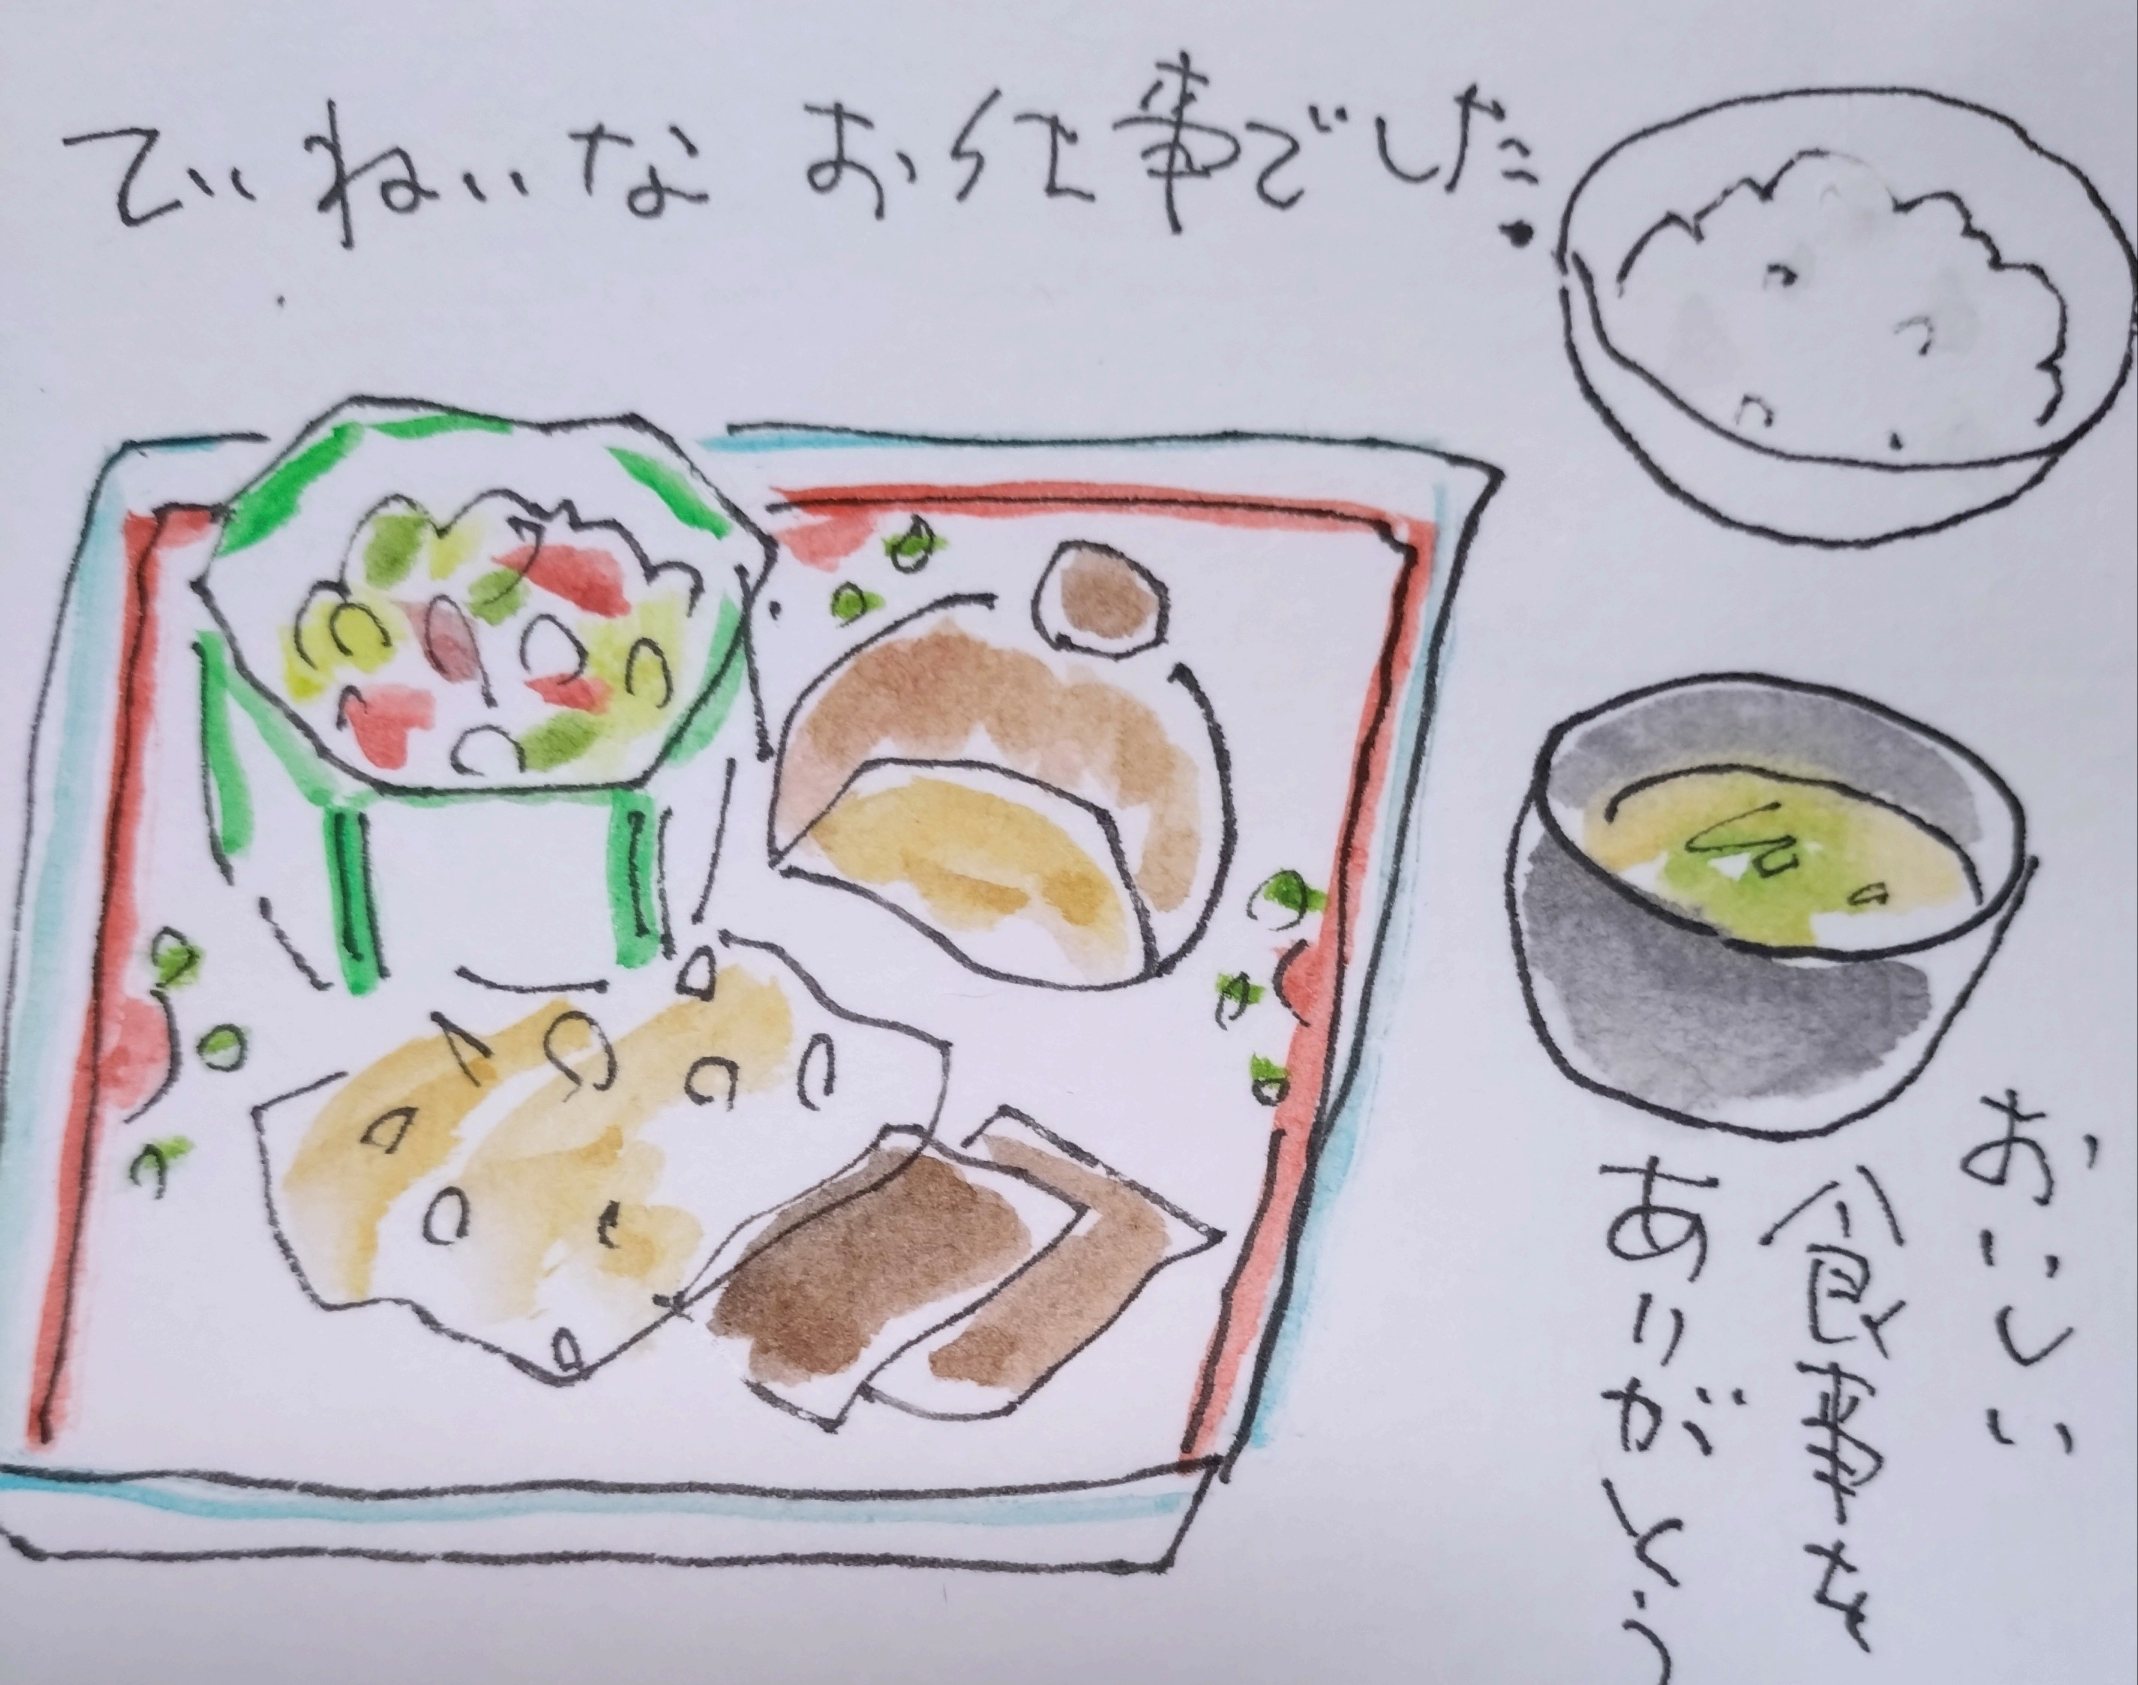 ていねいな お仕事でした.
おいしい
食事を
ありがとう